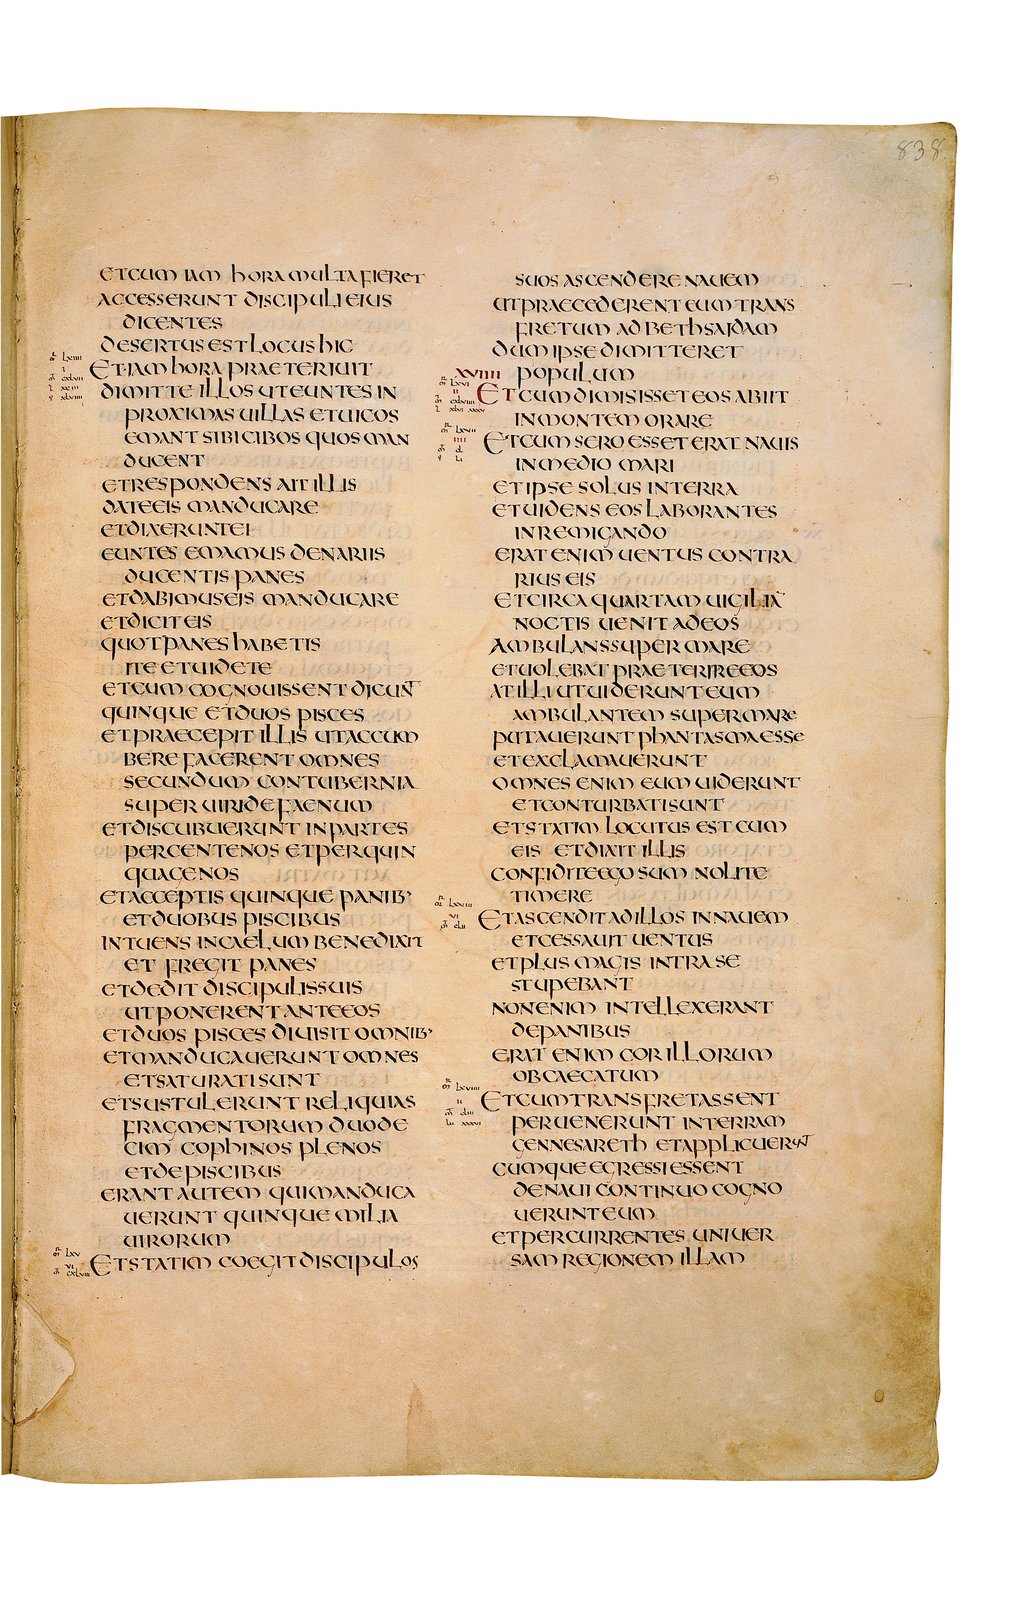 838
et cum iam hora multa fieret
accesserunt discipuli eius
dicentes
desertus est locus hic
et iam hora praeteriuit
dimitte illos ut euntes in
proximas uillas et uicos
emant sibi cibos quos man
ducent
et respondens ait illis
date eis manducare
et dixerunt ei
euntes emamus denariis
ducentis panes
et dabimus eis manducare
et dicit eis
quot panes habetis
ite et uidete
et cum cognouissent dicunt
quinque et duos pisces
et praecepit illis ut accum
bere facerent omnes
secundum contubernia
super uiride faenum
et discubuerunt in partes
per centenos et per quin
quagenos
et acceptis quinque panib'
et duobus piscibus
intuens in caelum benedixit
et fregit panes
et dedit discipulis suis
ut ponerent ante eos
et duos pisces diuisit omnib'
et manducauerunt omnes
et saturati sunt
et sustulerunt reliquias
fragmentorum duode
cim cophinos plenos
et de piscibus
erant autem qui manduca
uerunt quinque milia
uirorum
et statim coegit discipulos
suos ascendere nauem
ut praecederent eum trans
fretum ad bethsaidam
dum ipse dimitteret
xviiii populum
et cum dimisisset eos abiit
in montem orare
et cum sero esset erat nauis
in medio mari
et ipse solus in terra
et uidens eos laborantes
in remigando
erat enim uentus contra
rius eis
et circa quartam uigilia
noctis uenit ad eos
ambulans super mare
et uolebat praeterire eos
at illi ut uiderunt eum
ambulantem super mare
putauerunt phantasma esse
et exclamauerunt
omnes enim eum uiderunt
et conturbati sunt
et statim locutus est cum
eis et dixit illis
confidite ego sum nolite
timere
et ascendit ad illos in nauem
et cessauit uentus
et plus magis intra se
stupebant
non enim intellexerant
de panibus
erat enim cor illorum
obcaecatum
et cum transfretassent
peruenerunt in terram
gennesareth et applicuerunt
cumque egressi essent
de naui continuo cogno
uerunt eum
et percurrentes uniuer
sam regionem illam